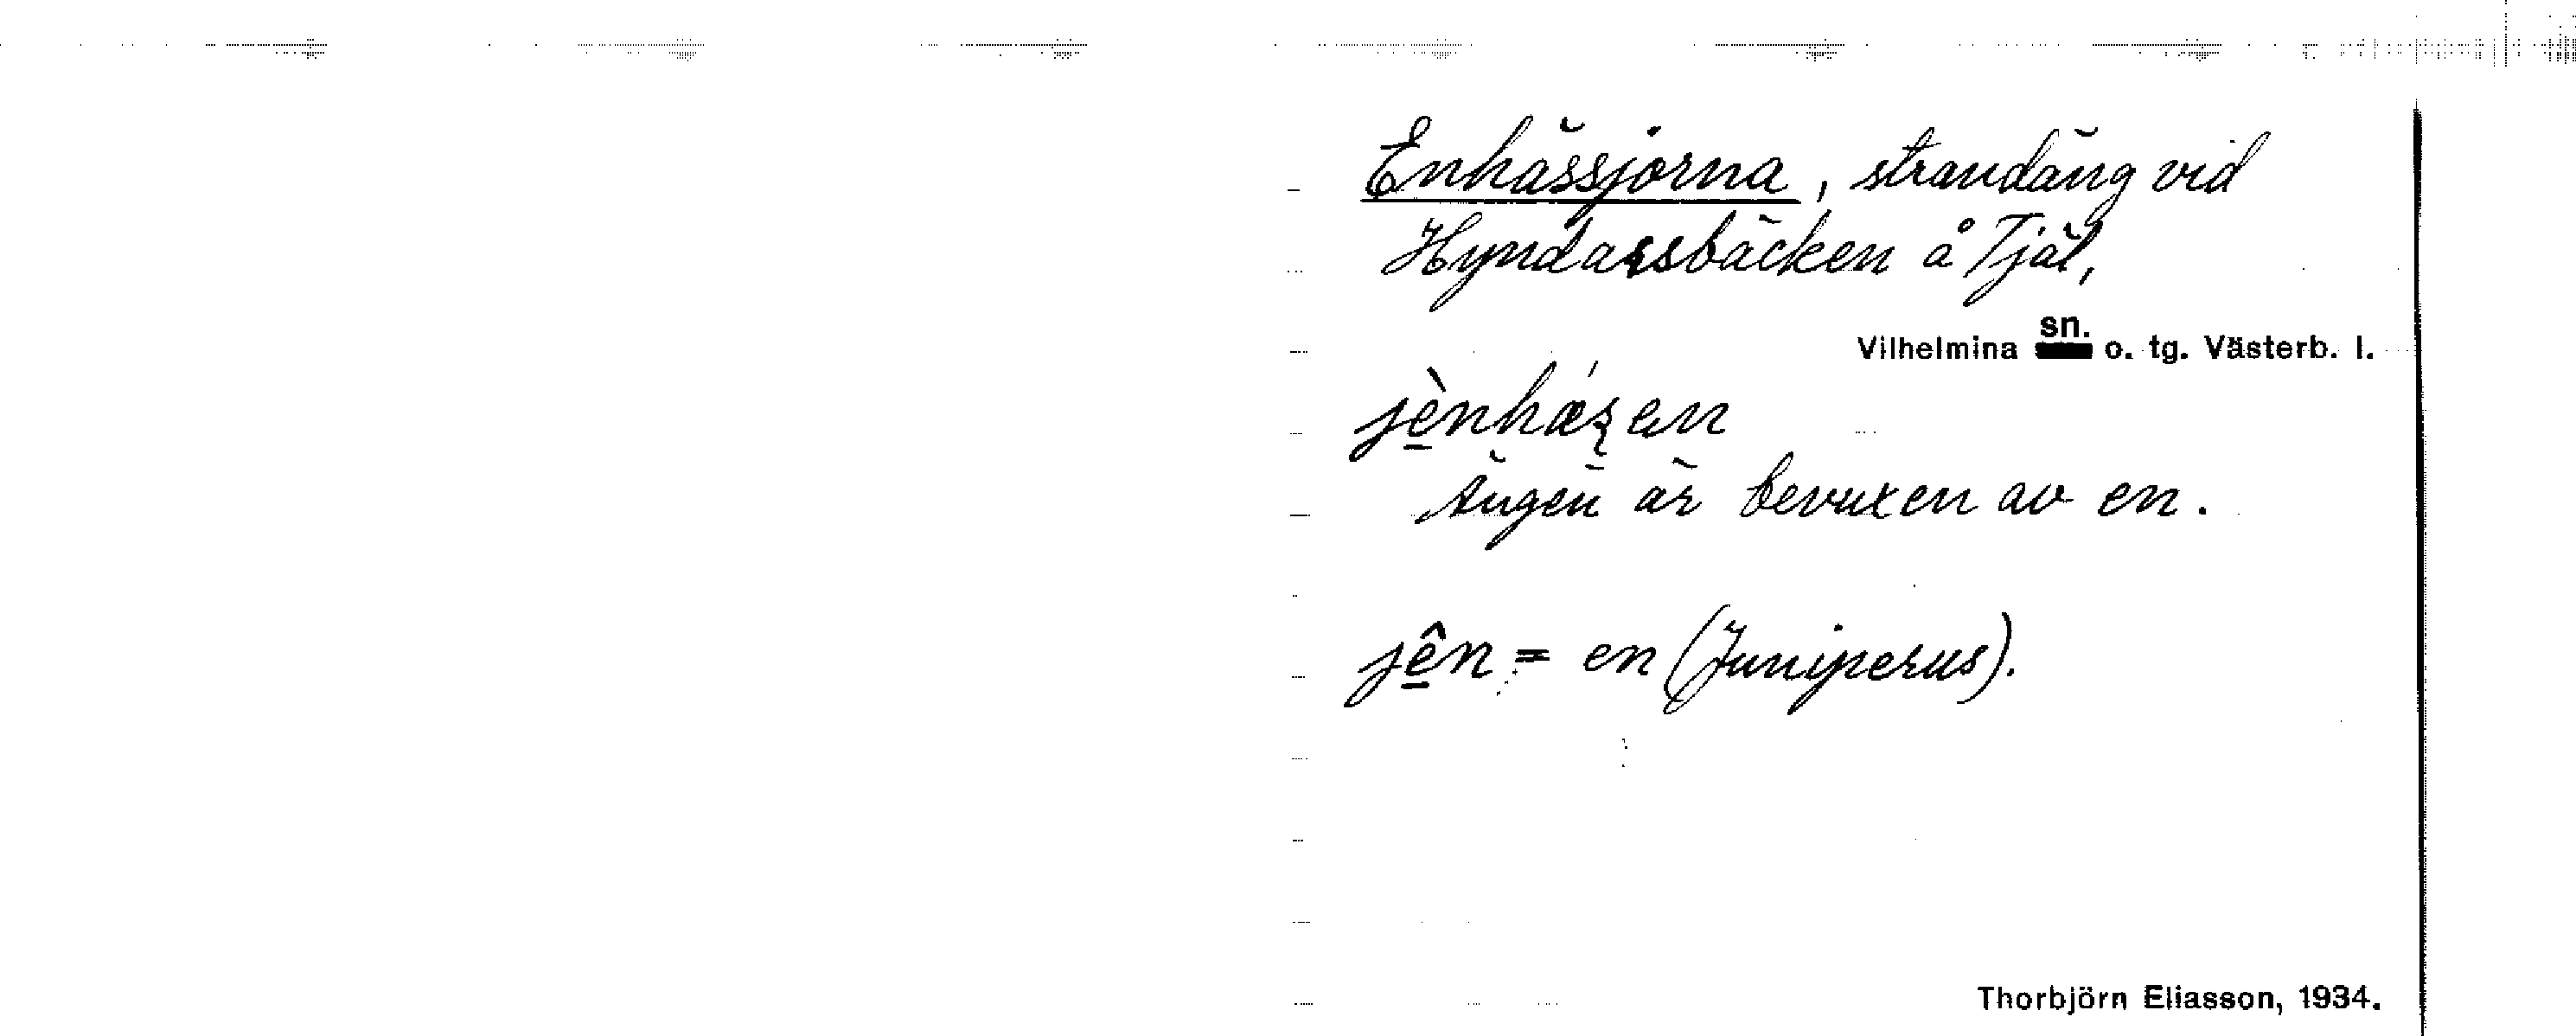 Enhässjorna, strandäng vid
Hyndarsbäcken å Tjäl,
Vilhelmina sn. o. tg. Västerb. l.
jènhǽʂen
Ängen är bevuxen av en.
jên = en (Juniperus).
Thorbjörn Eliasson, 1934.